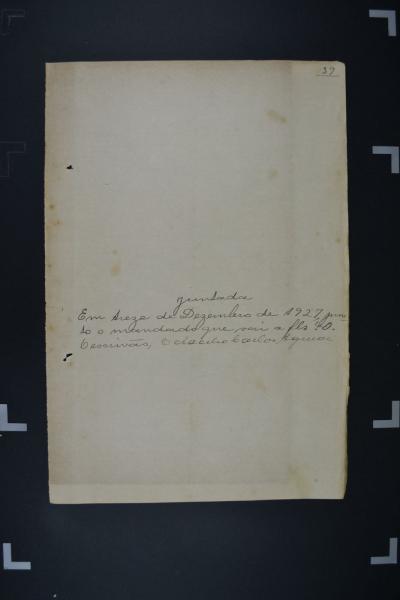 39
Juntada
Em treze de Dezembro de 1927, jun-
to o mandado que vai a fls 40.
O escrivão, Carlos